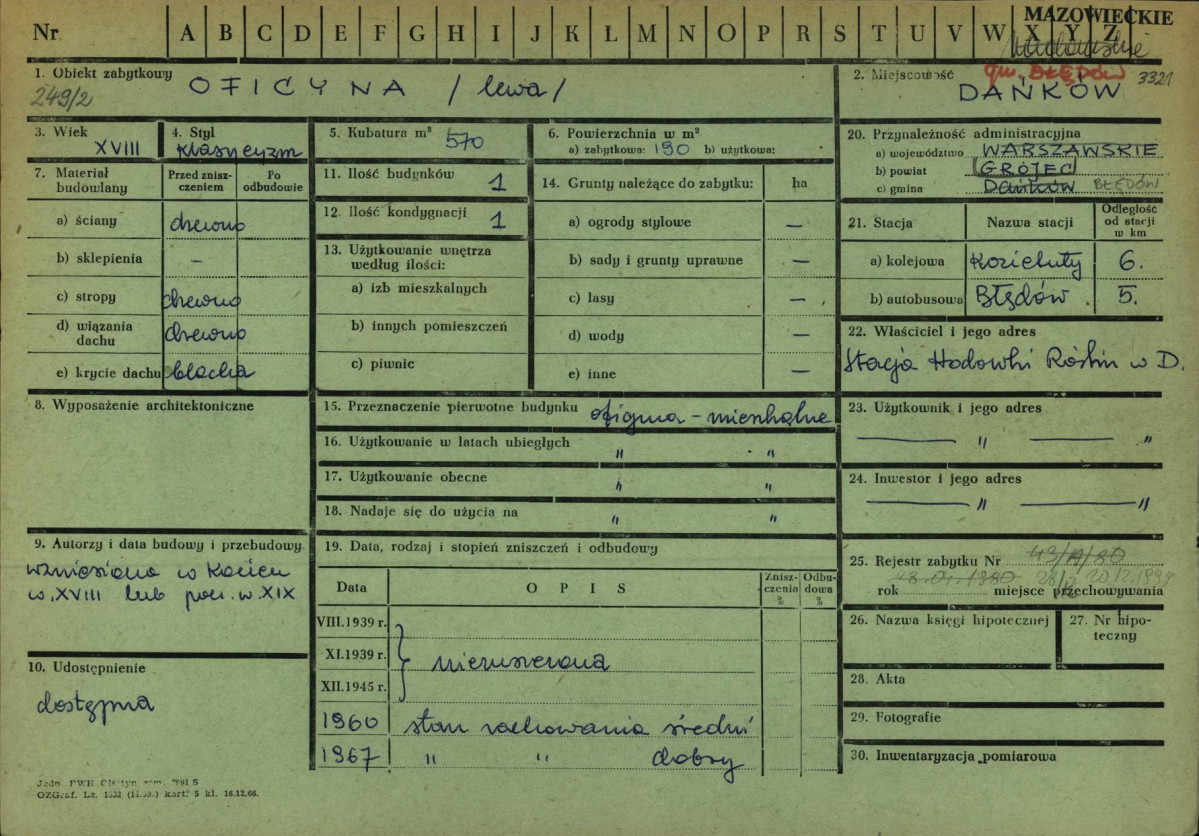 Nr A B C D E F G H I J K Ł L M N O P R S T U V W X Y Z
MAZOWIECKIE
1. Obiekt zabytkowy OFICYNA /lewa/
249/2
2. Miejscowość gm. BŁĘDÓW 3321
DAŃKÓW
3. Wiek
XVIII
4. Styl
klasycyzm
5. Kubatura m³ 570
6. Powierzchnia w m²
a) zabytkowa: 190 b) użytkowa:
7. Materiał budowlany
Przed zniszczeniem
Po odbudowie
a) ściany drewno
b) sklepienia –
c) stropy drewno
d) wiązania dachu drewno
e) krycie dachu blacha
8. Wyposażenie architektoniczne
9. Autorzy i data budowy i przebudowy
wzniesiona w końcu
w. XVIII lub pocz. w. XIX
10. Udostępnienie
dostępna
11. Ilość budynków 1
12. Ilość kondygnacji 1
13. Użytkowanie wnętrza
według ilości:
a) izb mieszkalnych
b) innych pomieszczeń
c) piwnic
14. Grunty należące do zabytku: ha
a) ogrody stylowe –
b) sady i grunty uprawne –
c) lasy –
d) wody –
e) inne –
15. Przeznaczenie pierwotne budynku oficyna – mieszkalne
16. Użytkowanie w latach ubiegłych " "
17. Użytkowanie obecne " "
18. Nadaje się do użycia na " "
19. Data, rodzaj i stopień zniszczeń i odbudowy
Data OPIS Zniszczenia % Odbudowa %
VIII.1939 r.
XI.1939 r. nienaruszona
XII.1945 r.
1960 stan zachowania średni
1967 " " dobry
20. Przynależność administracyjna
a) województwo WARSZAWSKIE
b) powiat GRÓJEC
c) gmina Dańków BŁĘDÓW
21. Stacja Nazwa stacji Odległość od stacji w km
a) kolejowa Kozietuły 6.
b) autobusowa Błędów 5.
22. Właściciel i jego adres
Stacja Hodowli Roślin w D.
23. Użytkownik i jego adres
" "
24. Inwestor i jego adres
" "
25. Rejestr zabytku Nr 43/A/80
rok miejsce przechowywania
26. Nazwa księgi hipotecznej
27. Nr hipoteczny
28. Akta
29. Fotografie
30. Inwentaryzacja pomiarowa